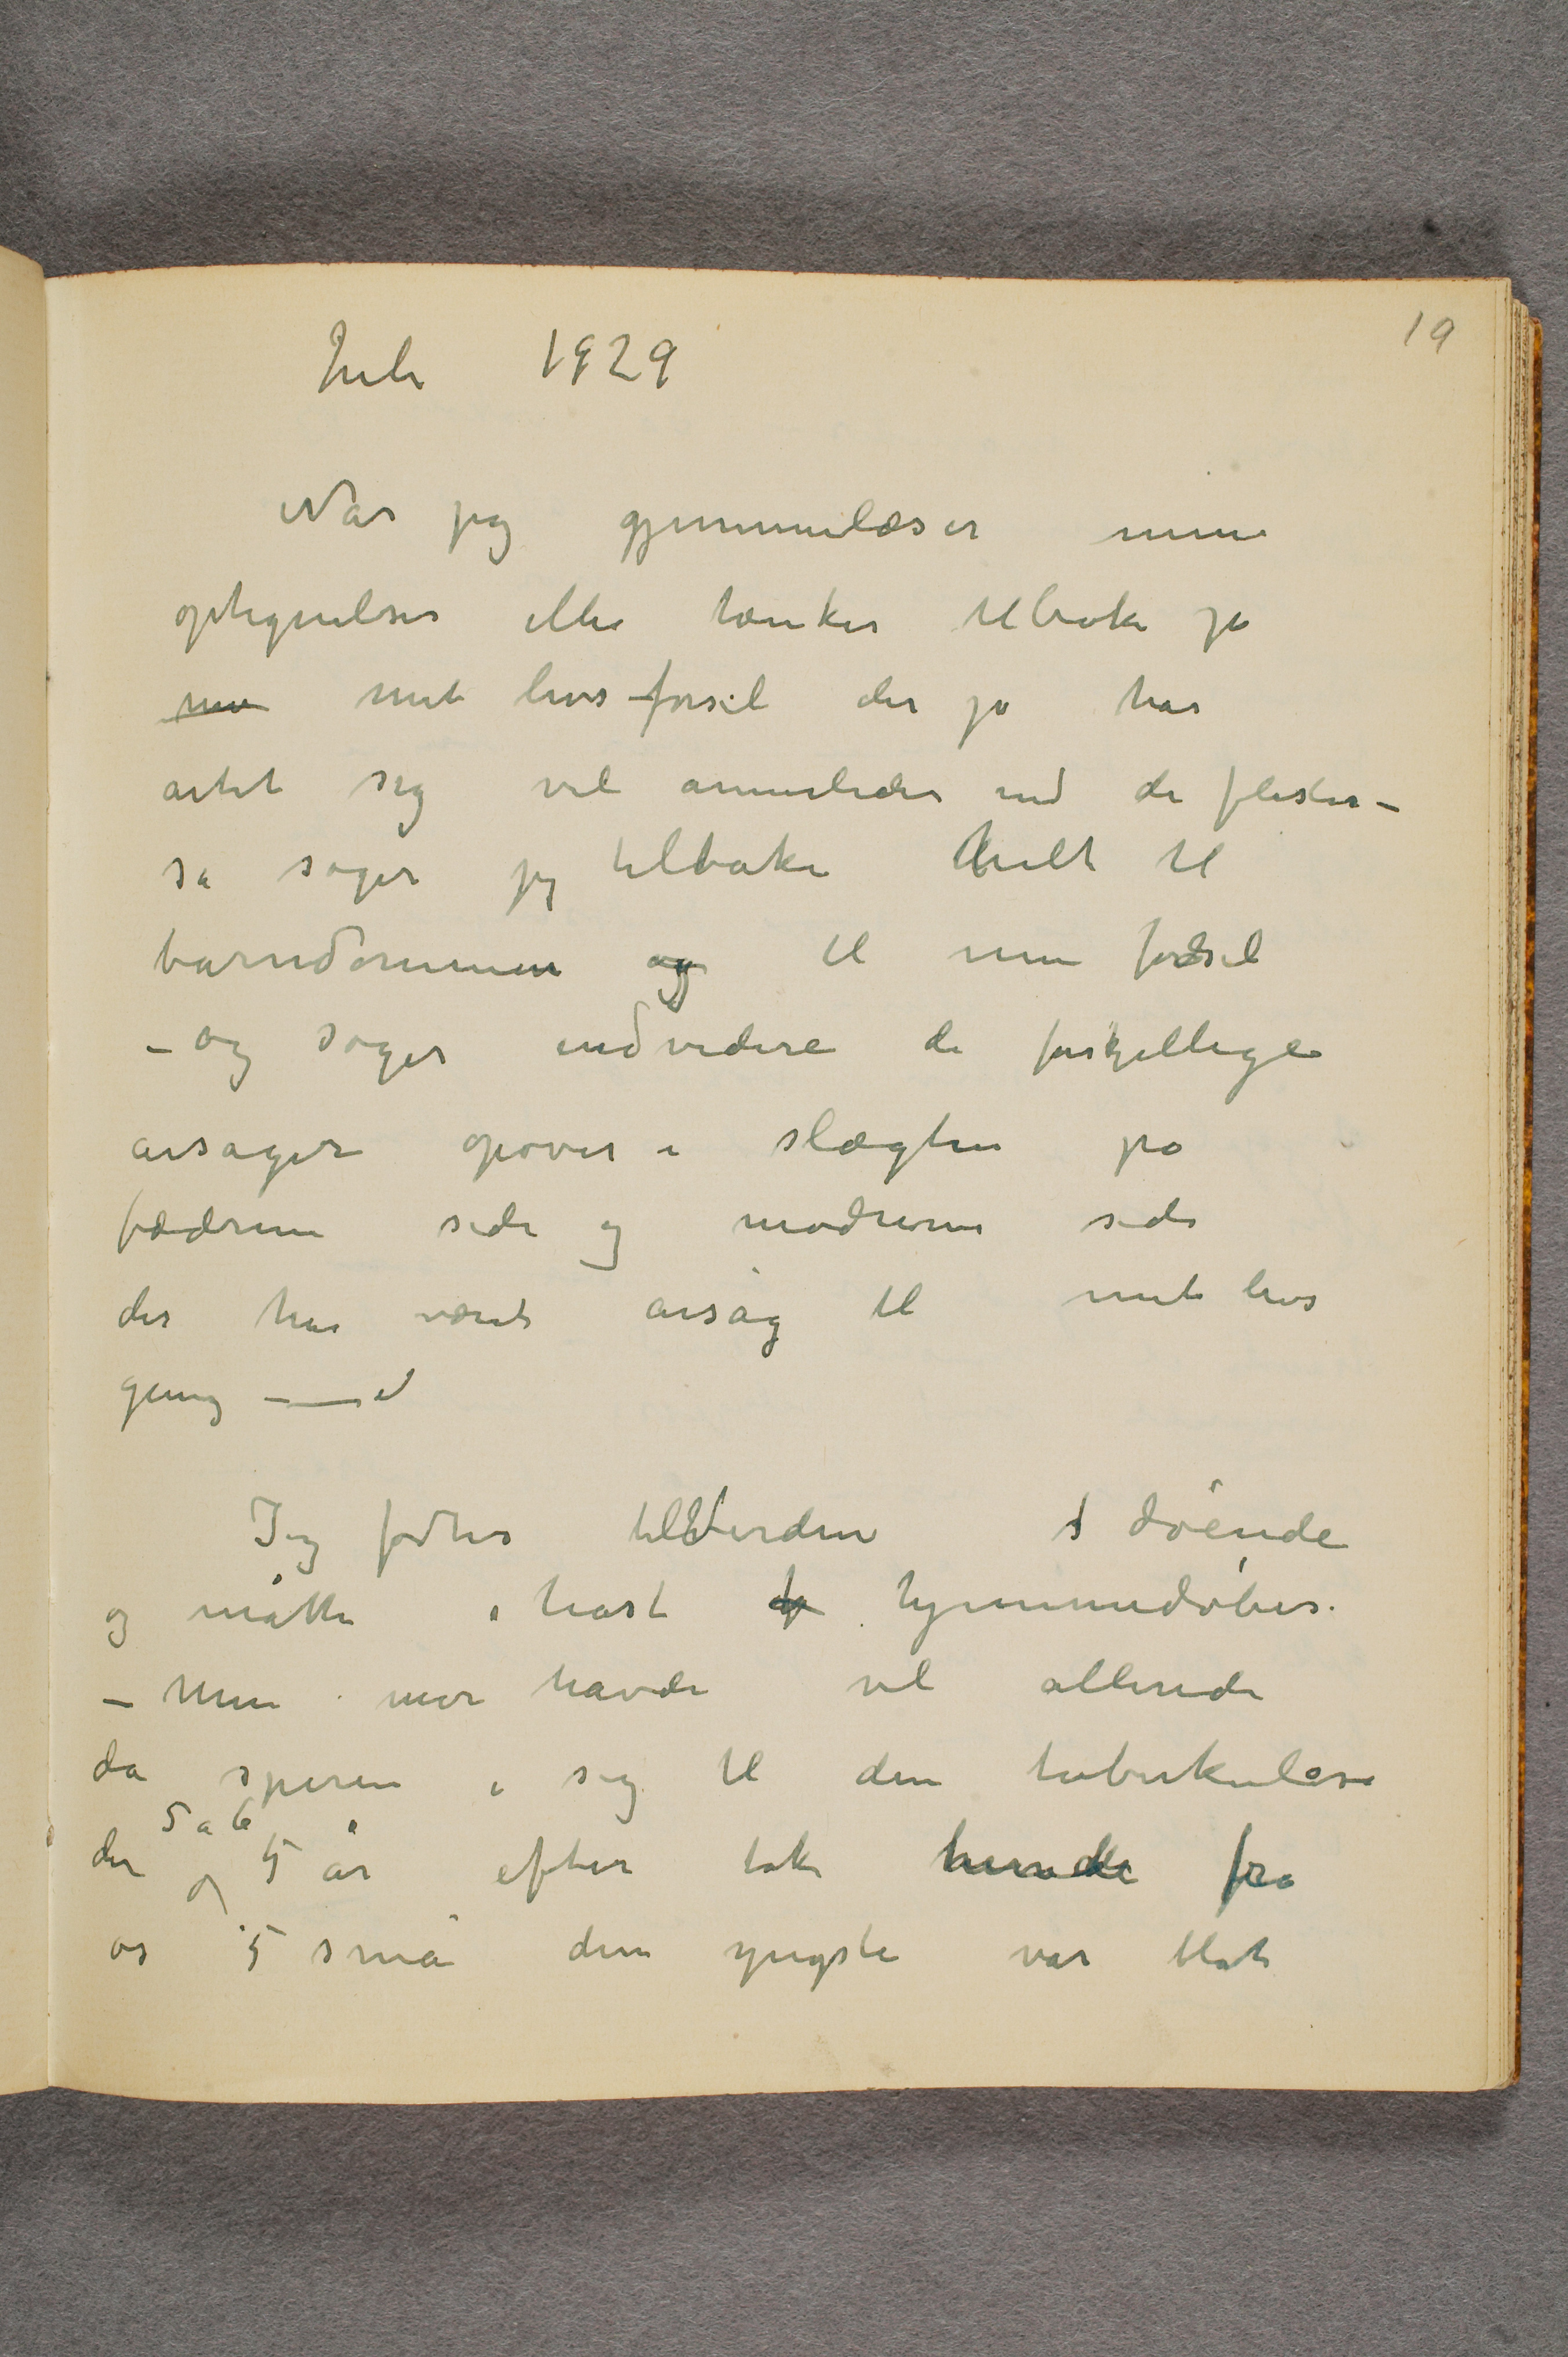 19
Juli 1929
Når jeg gjennemlæser mine
optegnelser eller tænker tilbake på
mit livsforsél der jo har
artet sig vel anneiledes end de flestes –
så søger jeg tilbake helt til
barndommen og til min fødsel
– og søger endvidere de forskjellige
årsager opover i slægten på
fædrene side og mødrene side
der har været årsag til mit livs
gang — et
Jeg fødtes til Verden døende
og måtte i hast hjemmedøbes.
– Min mor havde vel allerede
da spiren i sig til den tuberkulose
5 a 6
der og 5 år efter tok hende fra
os 5 små den yngste var blot